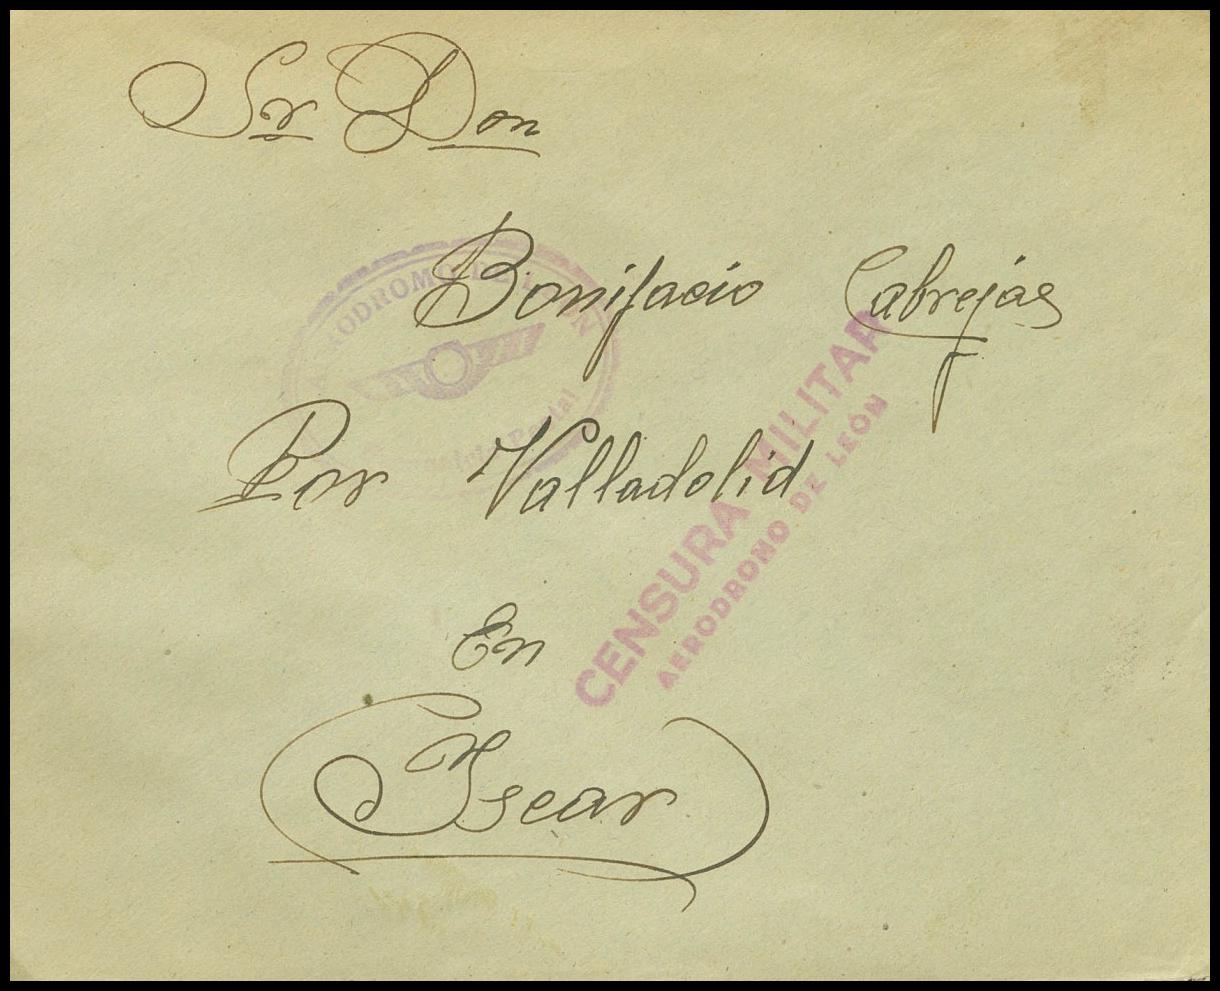 Sr Don
Bonifacio Cabrejas
Por Valladolid
En
Iscar
AERODROMO DE LEON
Postal
CENSURA MILITAR
AERODROMO DE LEÓN